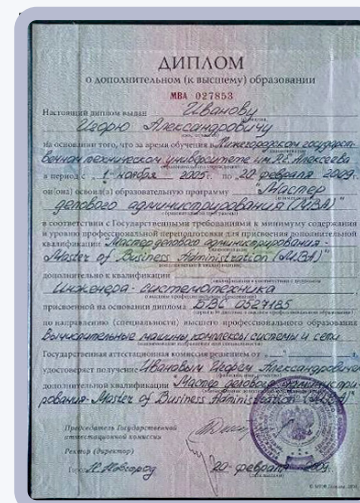 ДИПЛОМ
о дополнительном (к высшему) образовании
МВА 027853
Настоящий диплом выдан Иванову
Игорю Александровичу
на основании того, что за время обучения в Нижегородском государст-
венном техническом университете им. Р.Е. Алексеева
в период с 1 ноября 2005 г. по 20 февраля 2009 г.
он (она) освоил(а) образовательную программу "Мастер
делового администрирования (MBA)"
в соответствии с Государственными требованиями к минимуму содержания
и уровню профессиональной переподготовки для присвоения дополнительной
квалификации "Мастер делового администрирования -
Master of Business Administration (MBA)"
дополнительно к квалификации
Инженера-системотехника
присвоенной на основании диплома БВС 0527185
по направлению (специальности) высшего профессионального образования
Вычислительные машины, комплексы, системы и сети
Государственная аттестационная комиссия решением от
удостоверяет получение Ивановым Игорем Александровичем
дополнительной квалификации "Мастер делового администри-
рования - Master of Business Administration (MBA)"
Председатель Государственной
аттестационной комиссии
Ректор (директор)
Город Н. Новгород 20 февраля